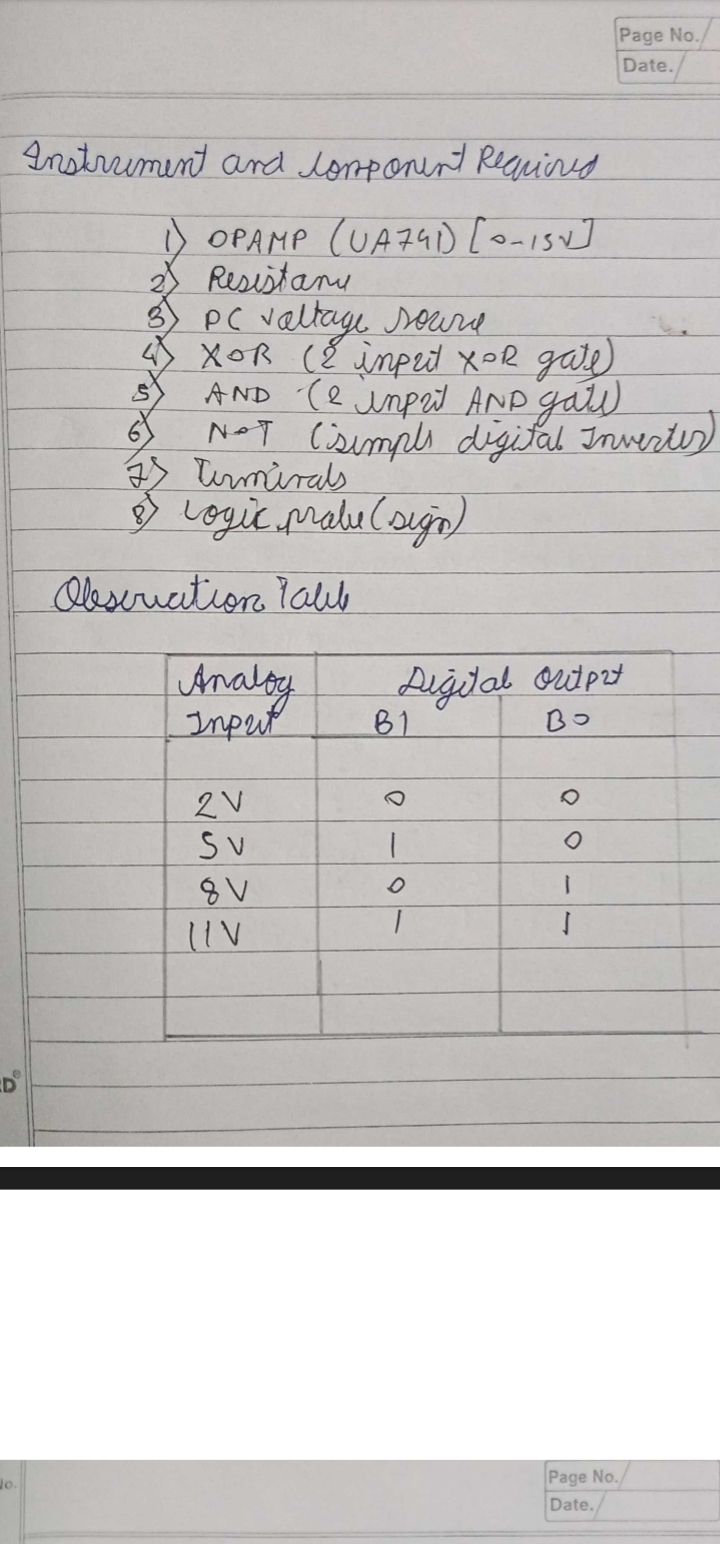 Page No.
Date.
Instrument and Component Required
1) OPAMP (UA741) [0-15V]
2) Resistance
3) DC voltage source
4) XOR (2 input XOR gate)
5) AND (2 input AND gate)
6) NOT (simple digital Inverter)
7) Terminals
8) Logic probe (sign)
Observation Table
Analog Digital Output
Input B1 B0
2V 0 0
5V 1 0
8V 0 1
11V 1 1
D®
No.
Page No.
Date.